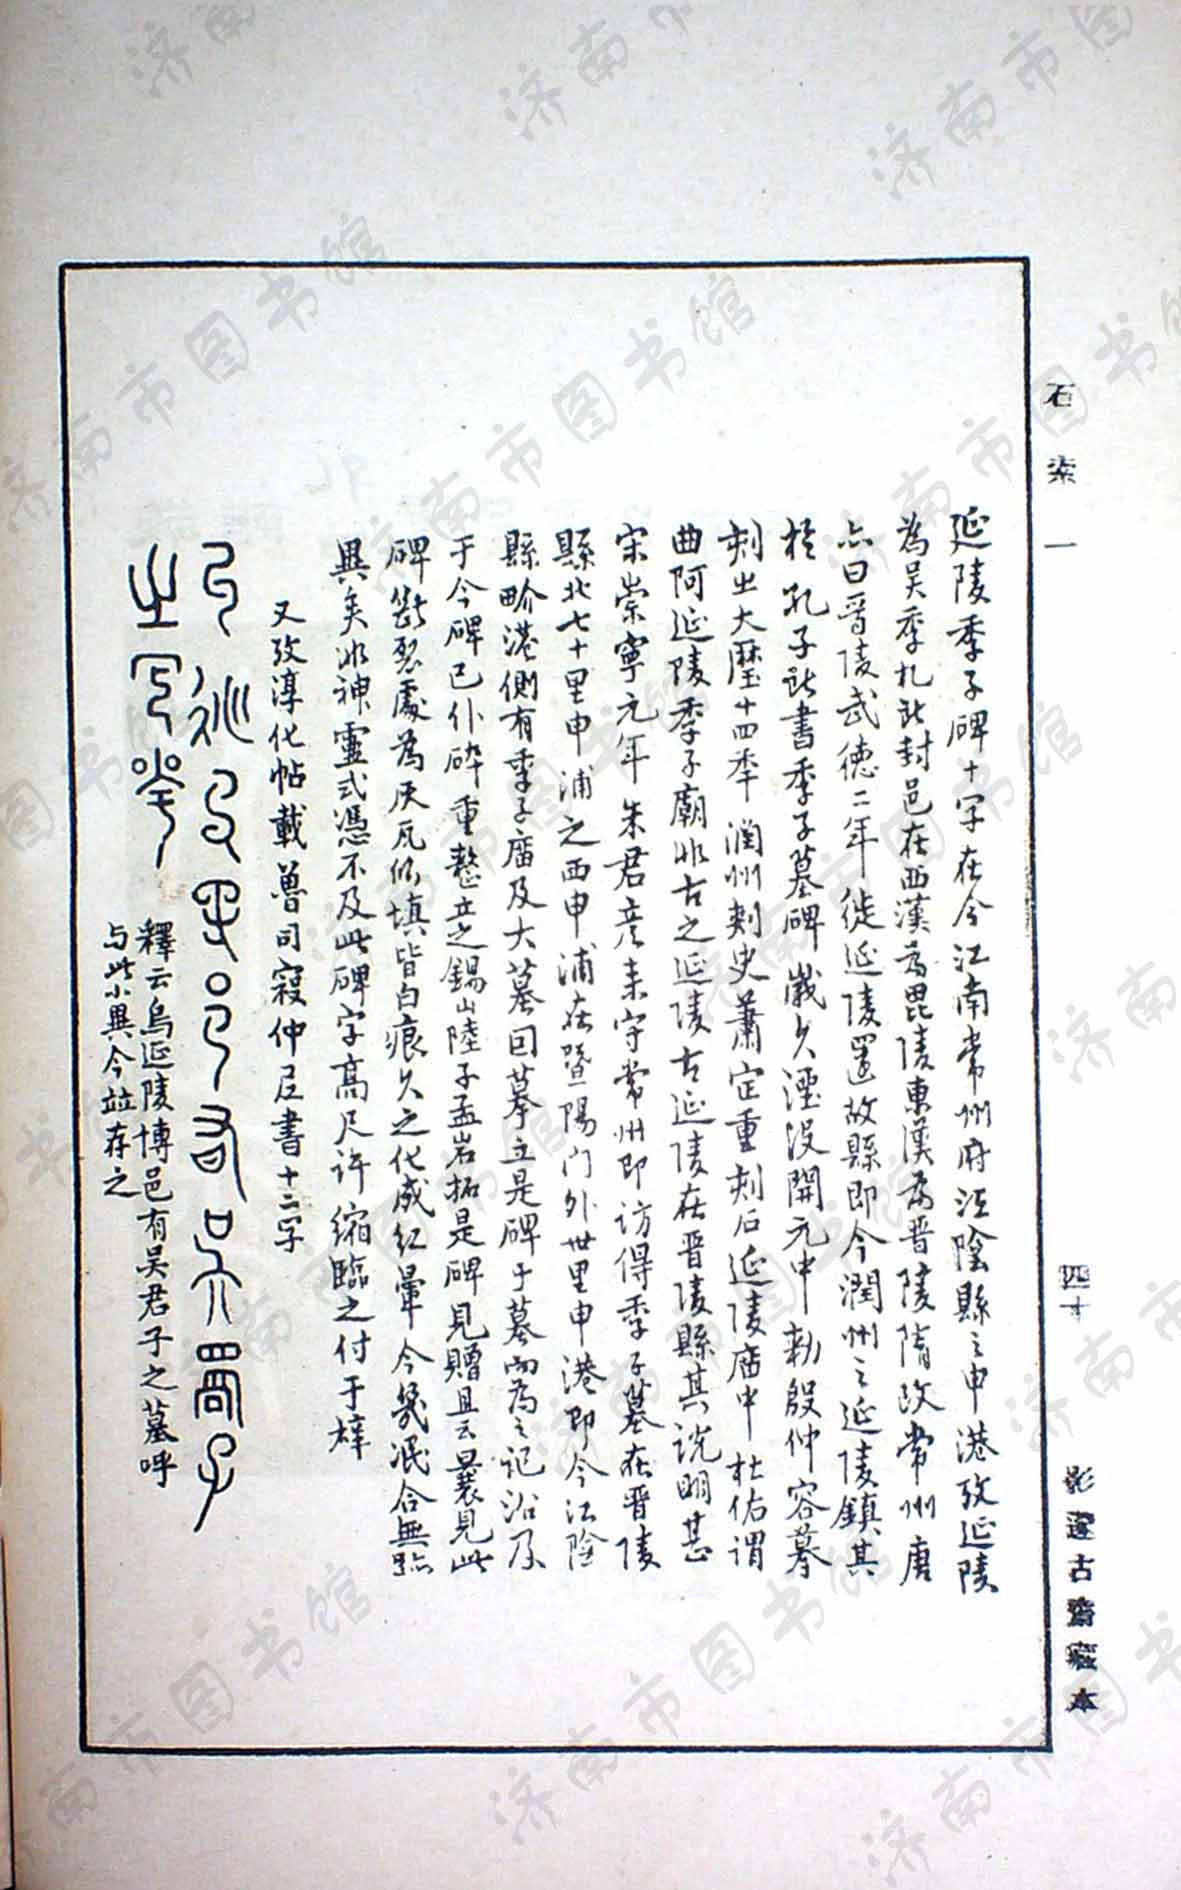 石索一
四十
影遂古齋藏本
延陵季子碑十字在今江南常州府江陰縣之申港攷延陵
為吳季札所封邑在西漢為毘陵東漢為晋陵隋改常州唐
亦曰晋陵武德二年徙延陵置故縣即今潤州之延陵鎮其
於孔子所書季子墓碑歲久湮没開元中勅殷仲容摹
刻出大厯十四季潤州刺史蕭定重刻后延陵庿中杜佑謂
曲阿延陵季子廟非古之延陵古延陵在晋陵縣其説明甚
宋崇寧元年朱君彦来守常州即訪得季子墓在晋陵
縣北七十里申浦之西申浦在暨陽門外卅里申港即今江陰
縣畍港側有季子庿及大墓回摹立是碑于墓而為之記沿及
于今碑已仆碎重整立之錫山陸子孟岩拓是碑見贈且云曩見此
碑斷裂處為灰瓦所填皆白痕久之化成紅暈今幾泯合無跡
異矣非神靈式憑不及此碑字高尺許縮臨之付于梓
又攷淳化帖載魯司寇仲尼書十二字
釋云烏延陵博邑有吳君子之墓呼
与此小異今竝存之
济南市图书馆